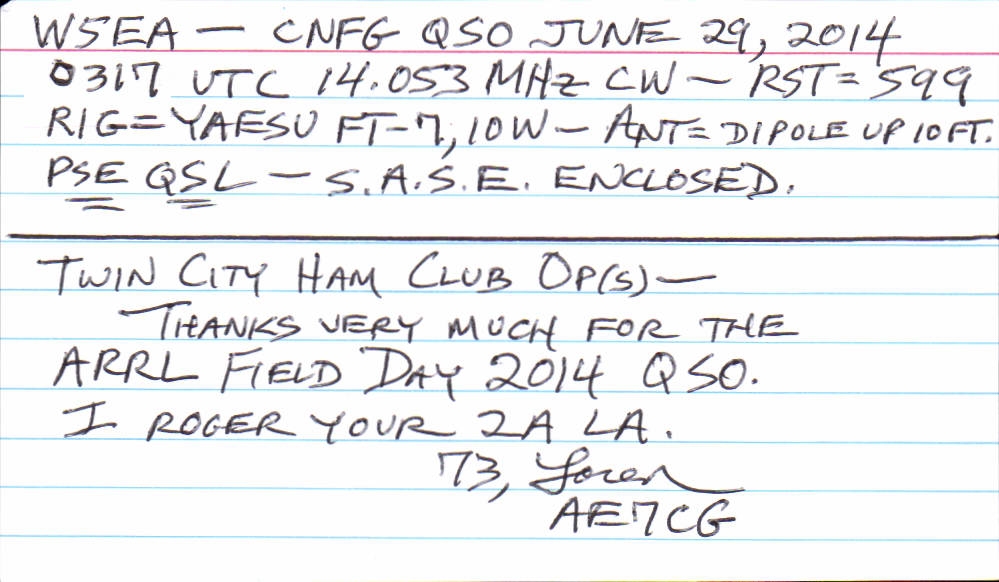 W5EA — CNFG QSO JUNE 29, 2014
0317 UTC 14.053 MHz CW — RST = 599
RIG = YAESU FT-7, 10W — ANT = DIPOLE UP 10 FT.
PSE QSL — S.A.S.E. ENCLOSED.
TWIN CITY HAM CLUB OP(S) —
THANKS VERY MUCH FOR THE
ARRL FIELD DAY 2014 QSO.
I ROGER YOUR 2A LA.
73, Loren
AE7CG